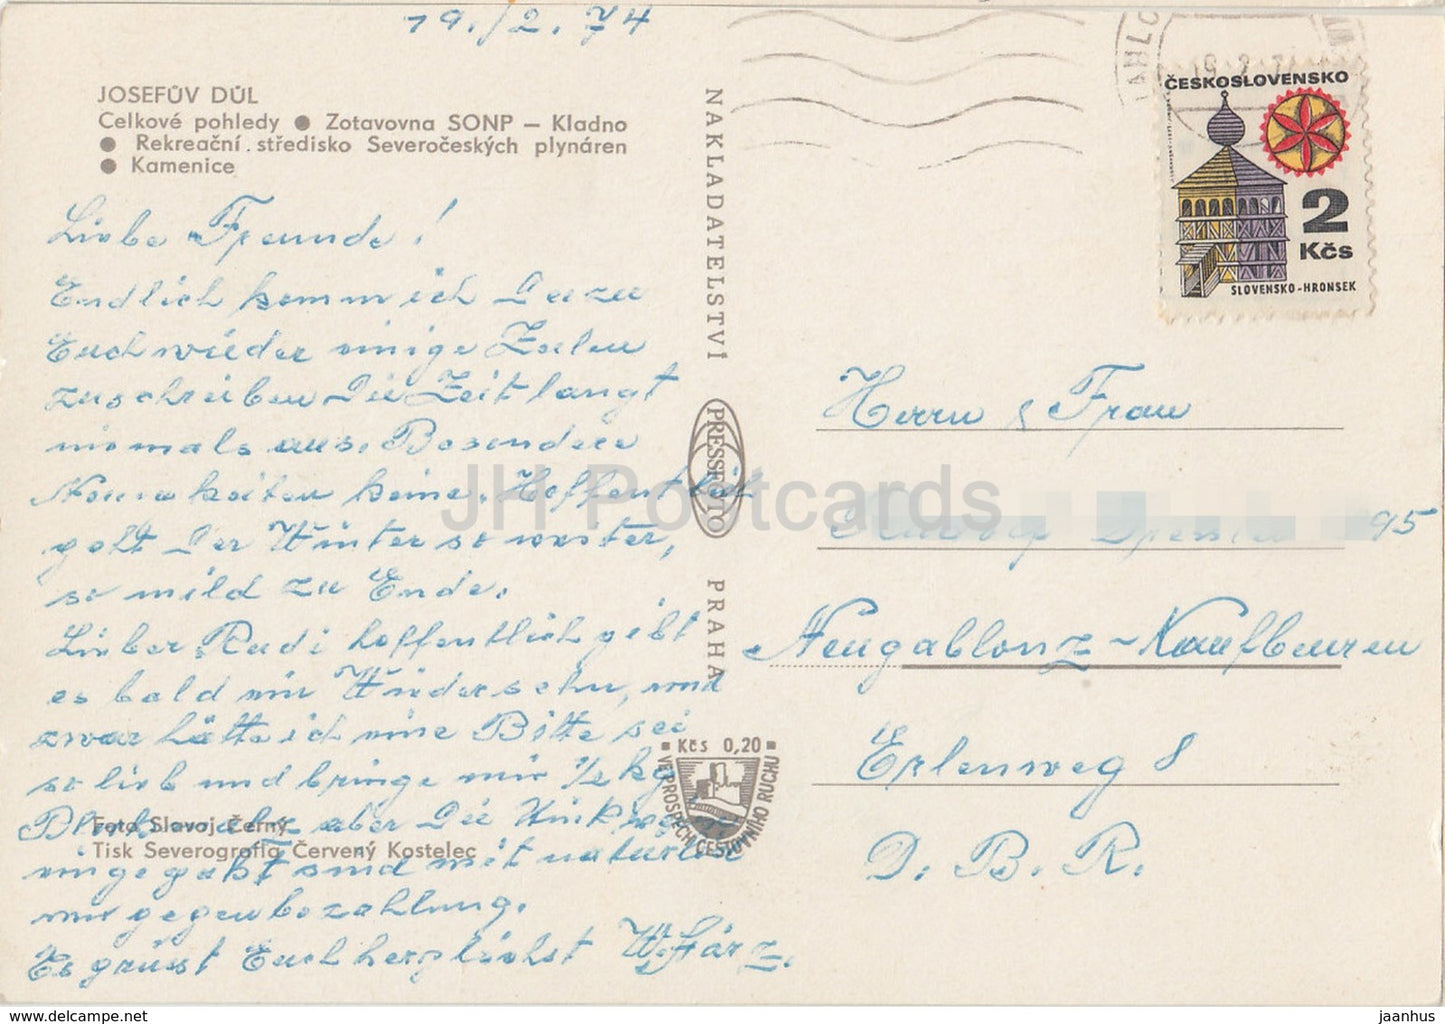 19./2. 74
JOSEFŮV DŮL
Celkové pohledy ● Zotavovna SONP – Kladno
● Rekreační středisko Severočeských plynáren
● Kamenice
Liebe Freunde!
Endlich komm ich Dazu
Euch wieder einige Zeilen
zuschreiben Die Zeit langt
niemals aus. Besondere
keine. Hoffentlich
geht Der Winter so weiter,
so mild zu Ende.
Lieber Rudi hoffentlich gibt
es bald ein Wiedersehn, und
zwar hätte ich eine Bitte sei
so lieb und bringe mir 1/2 kg
aber Die
sind mit natürlich
nur gegenbezahlung.
Es grüsst Euch herzlichst
Foto Slavoj Černý
Tisk Severografia Červený Kostelec
NAKLADATELSTVÍ
PRESSFOTO
PRAHA
■ Kčs 0,20 ■
VE PROSPĚCH CESTOVNÍHO RUCHU
ČESKOSLOVENSKO
2
Kčs
SLOVENSKO-HRONSEK
Herrn & Frau
95
Neugablonz-Kaufbeuren
Erlenweg 8
D. B. R.
JH Postcards
delcampe.net
jaanhus